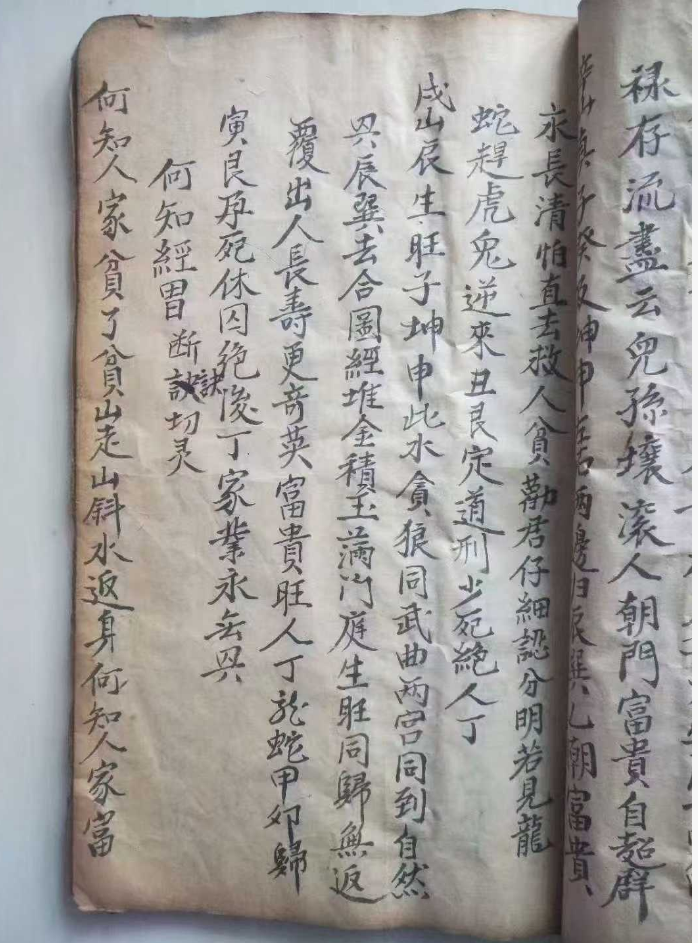 禄存流盡云兒孫壤滚人朝門富貴自超群
子癸坤申左右兩邊归辰巽乙朝富貴
永長清怕直去救人貧勸君仔細認分明若見龍
蛇趕虎兔逆來丑艮定遭刑少死絶人丁
戍山辰生旺子坤申此水貪狼同武曲两宫同到自然
興辰巽去合圖經堆金積玉满门庭生旺同歸無返
覆出人長壽更竒英富貴旺人丁龍蛇甲卯歸
寅艮孕死休囚絶後丁家業永無興
何知經冒断訣切灵
何知人家貧了貧山走山斜水返身何知人家富